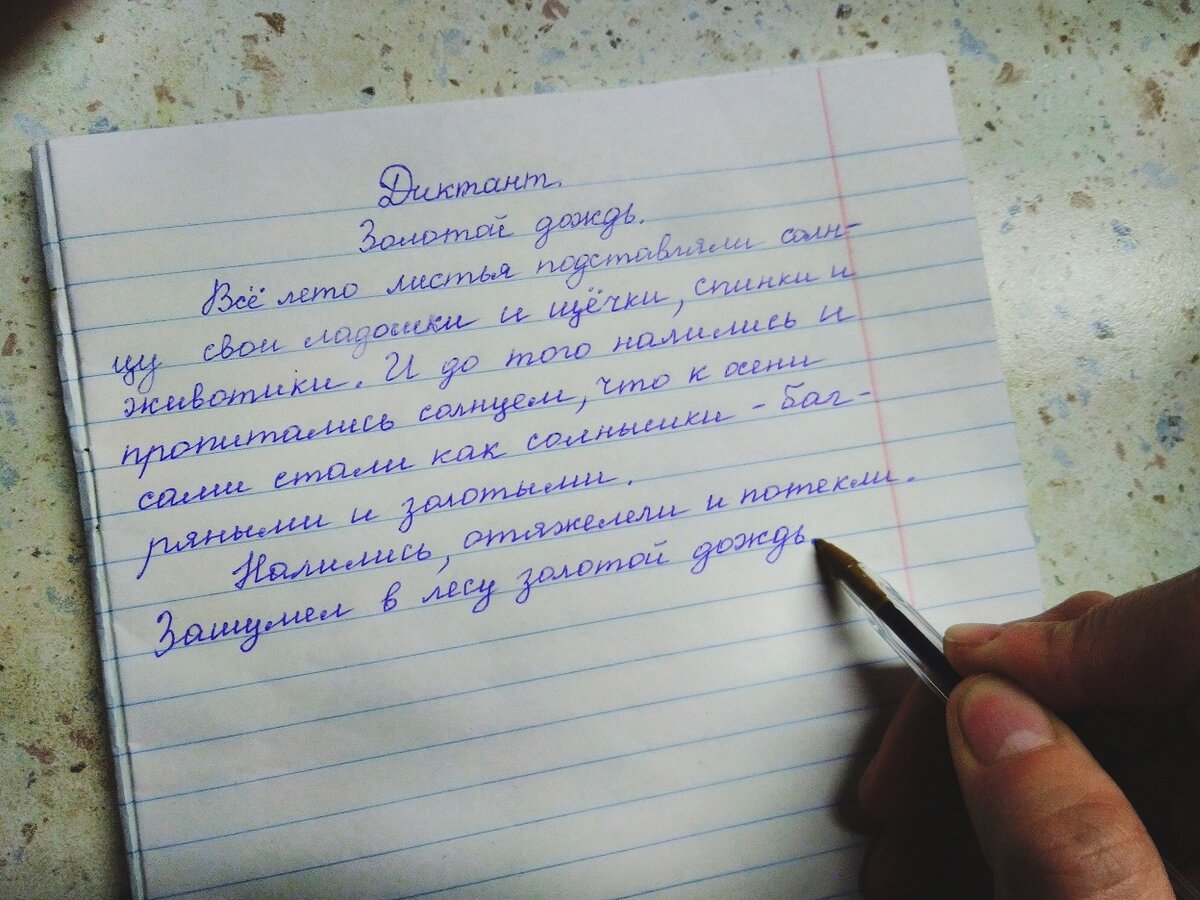 Диктант.
Золотой дождь.
Всё лето листья подставляли солн-
цу свои ладошки и щёчки, спинки и
животики. И до того налились и
пропитались солнцем, что к осени
сами стали как солнышки - баг-
ряными и золотыми.
Налились, отяжелели и потекли.
Зашумел в лесу золотой дождь.